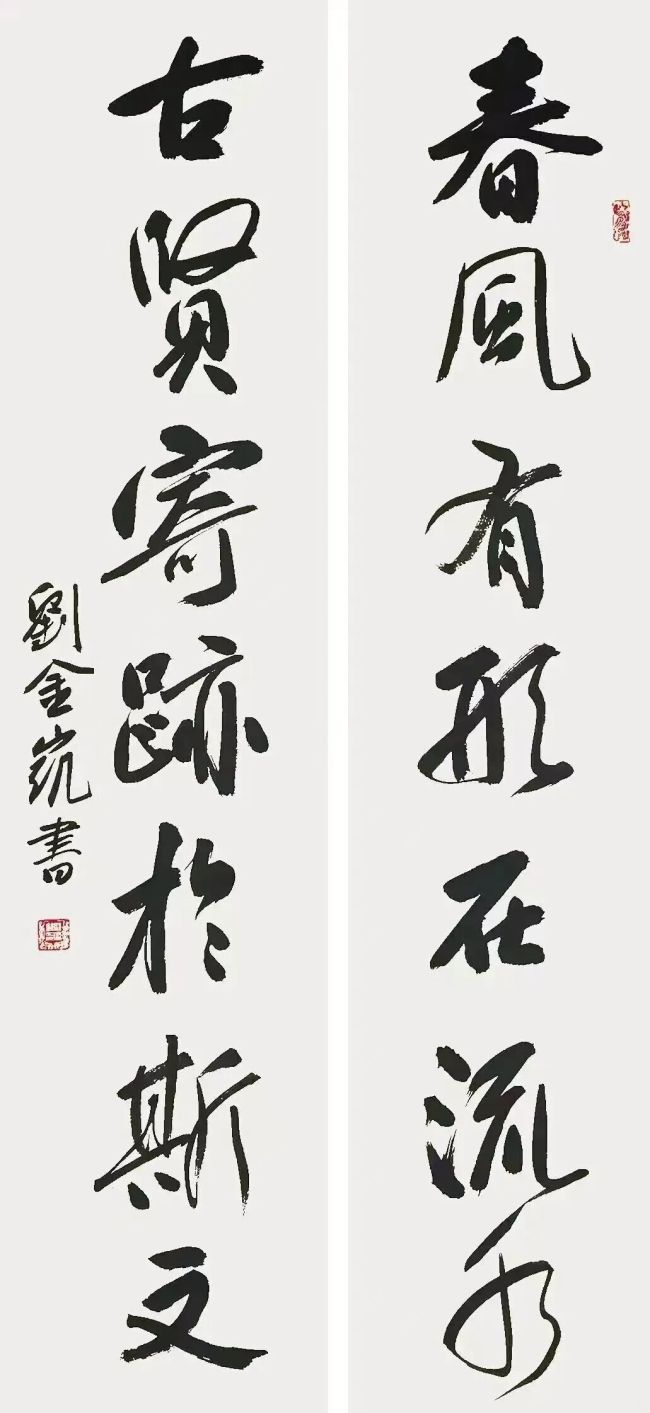 春風有形在流水
古賢寄跡於斯文
劉金凱書